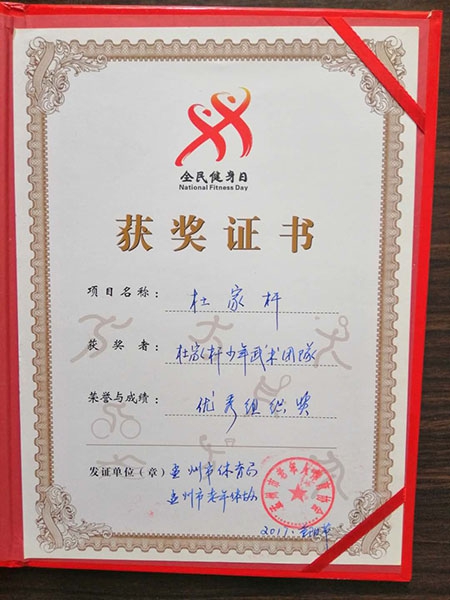 全民健身日
National Fitness Day
获奖证书
项目名称： 杜家杆
获奖者： 杜家杆少年武术团队
荣誉与成绩： 优秀组织奖
发证单位（章） 孟州市体育局
孟州市老年体协
孟州市老年人体育协会
2011.